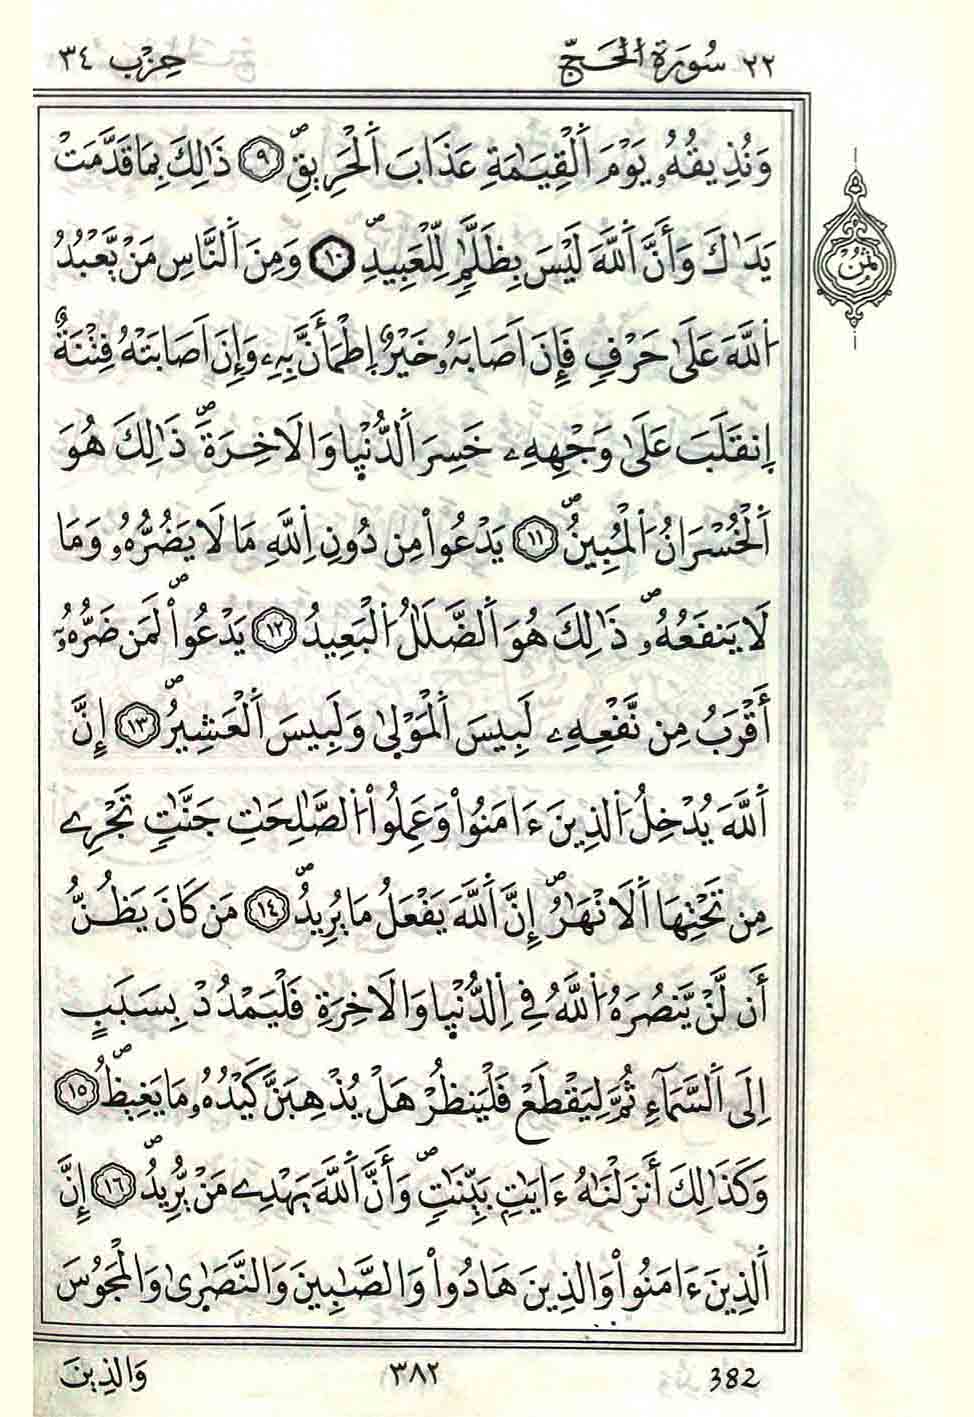 ٢٢ سُورَةُ الْحَجِّ حِزْب ٣٤
وَنُذِيقُهُۥ يَوْمَ اَ۬لْقِيَٰمَةِ عَذَابَ اَ۬لْحَرِيقِۖ ٩ ذَٰلِكَ بِمَا قَدَّمَتْ
يَدَٰكَ وَأَنَّ اَ۬للَّهَ لَيْسَ بِظَلَّٰمٖ لِّلْعَبِيدِۖ ١٠ وَمِنَ اَ۬لنَّاسِ مَنْ يَّعْبُدُ
ثُمُن
اُ۬للَّهَ عَلَىٰ حَرْفٖ فَإِنَ اَصَابَهُۥ خَيْرٌ اِ۪طْمَأَنَّ بِهِۦ وَإِنَ اَصَابَتْهُ فِتْنَةٌ
اِ۪نقَلَبَ عَلَىٰ وَجْهِهِۦ خَسِرَ اَ۬لدُّنْي۪ا وَالَاخِرَةَۖ ذَٰلِكَ هُوَ
اَ۬لْخُسْرَانُ اُ۬لْمُبِينُۖ ١١ يَدْعُواْ مِن دُونِ اِ۬للَّهِ مَا لَا يَضُرُّهُۥ وَمَا
لَا يَنفَعُهُۥۖ ذَٰلِكَ هُوَ اَ۬لضَّلَٰلُ اُ۬لْبَعِيدُۖ ١٢ يَدْعُواْ لَمَن ضَرُّهُۥٓ
أَقْرَبُ مِن نَّفْعِهِۦ لَبِيسَ اَ۬لْمَوْل۪ىٰ وَلَبِيسَ اَ۬لْعَشِيرُۖ ١٣ إِنَّ
اَ۬للَّهَ يُدْخِلُ اُ۬لذِينَ ءَامَنُواْ وَعَمِلُواْ اُ۬لصَّٰلِحَٰتِ جَنَّٰتٖ تَجْرِے
مِن تَحْتِهَا اَ۬لَانْهَٰرُۖ إِنَّ اَ۬للَّهَ يَفْعَلُ مَا يُرِيدُۖ ١٤ مَن كَانَ يَظُنُّ
أَن لَّنْ يَّنصُرَهُ اُ۬للَّهُ فِے اِ۬لدُّنْي۪ا وَالَاخِرَةِ فَلْيَمْدُدْ بِسَبَبٍ
اِلَى اَ۬لسَّمَآءِ ثُمَّ لِيَقْطَعْ فَلْيَنظُرْ هَلْ يُذْهِبَنَّ كَيْدُهُۥ مَا يَغِيظُۖ ١٥
وَكَذَٰلِكَ أَنزَلْنَٰهُ ءَايَٰتِۢ بَيِّنَٰتٖۖ وَأَنَّ اَ۬للَّهَ يَهْدِے مَنْ يُّرِيدُۖ ١٦ إِنَّ
اَ۬لذِينَ ءَامَنُواْ وَالذِينَ هَادُواْ وَالصَّٰبِينَ وَالنَّصَٰر۪ىٰ وَالْمَجُوسَ
382 ٣٨٢ وَالذِينَ